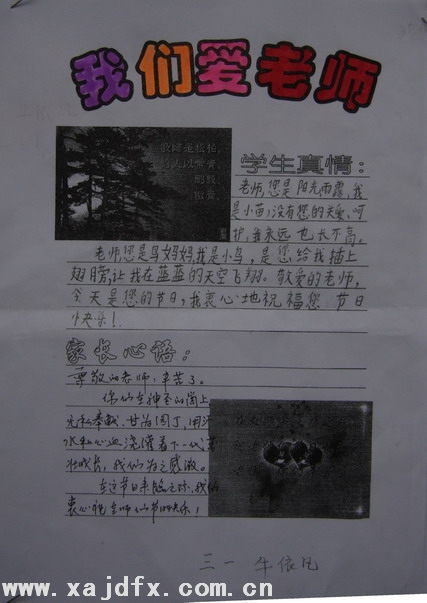 我们爱老师
教师是松柏,
给人以常青、
刚毅、
学生真情:
老师,您是阳光雨露,我
是小苗;没有您的关爱、呵
护,我永远也长不高。
老师您是鸟妈妈,我是小鸟,是您给我插上
翅膀,让我在蓝蓝的天空飞翔。敬爱的老师,
今天是您的节日,我衷心地祝福您节日
快乐!
家长心语:
尊敬的老师,辛苦了。
你们在神圣的岗上
无私奉献,甘为园丁,用汗
水和心血浇灌着下一代茁
壮成长,我们为之感激。
在这节日来临之际,我们
衷心祝老师们节日快乐!
三一 牛依凡
www.xajdfx.com.cn